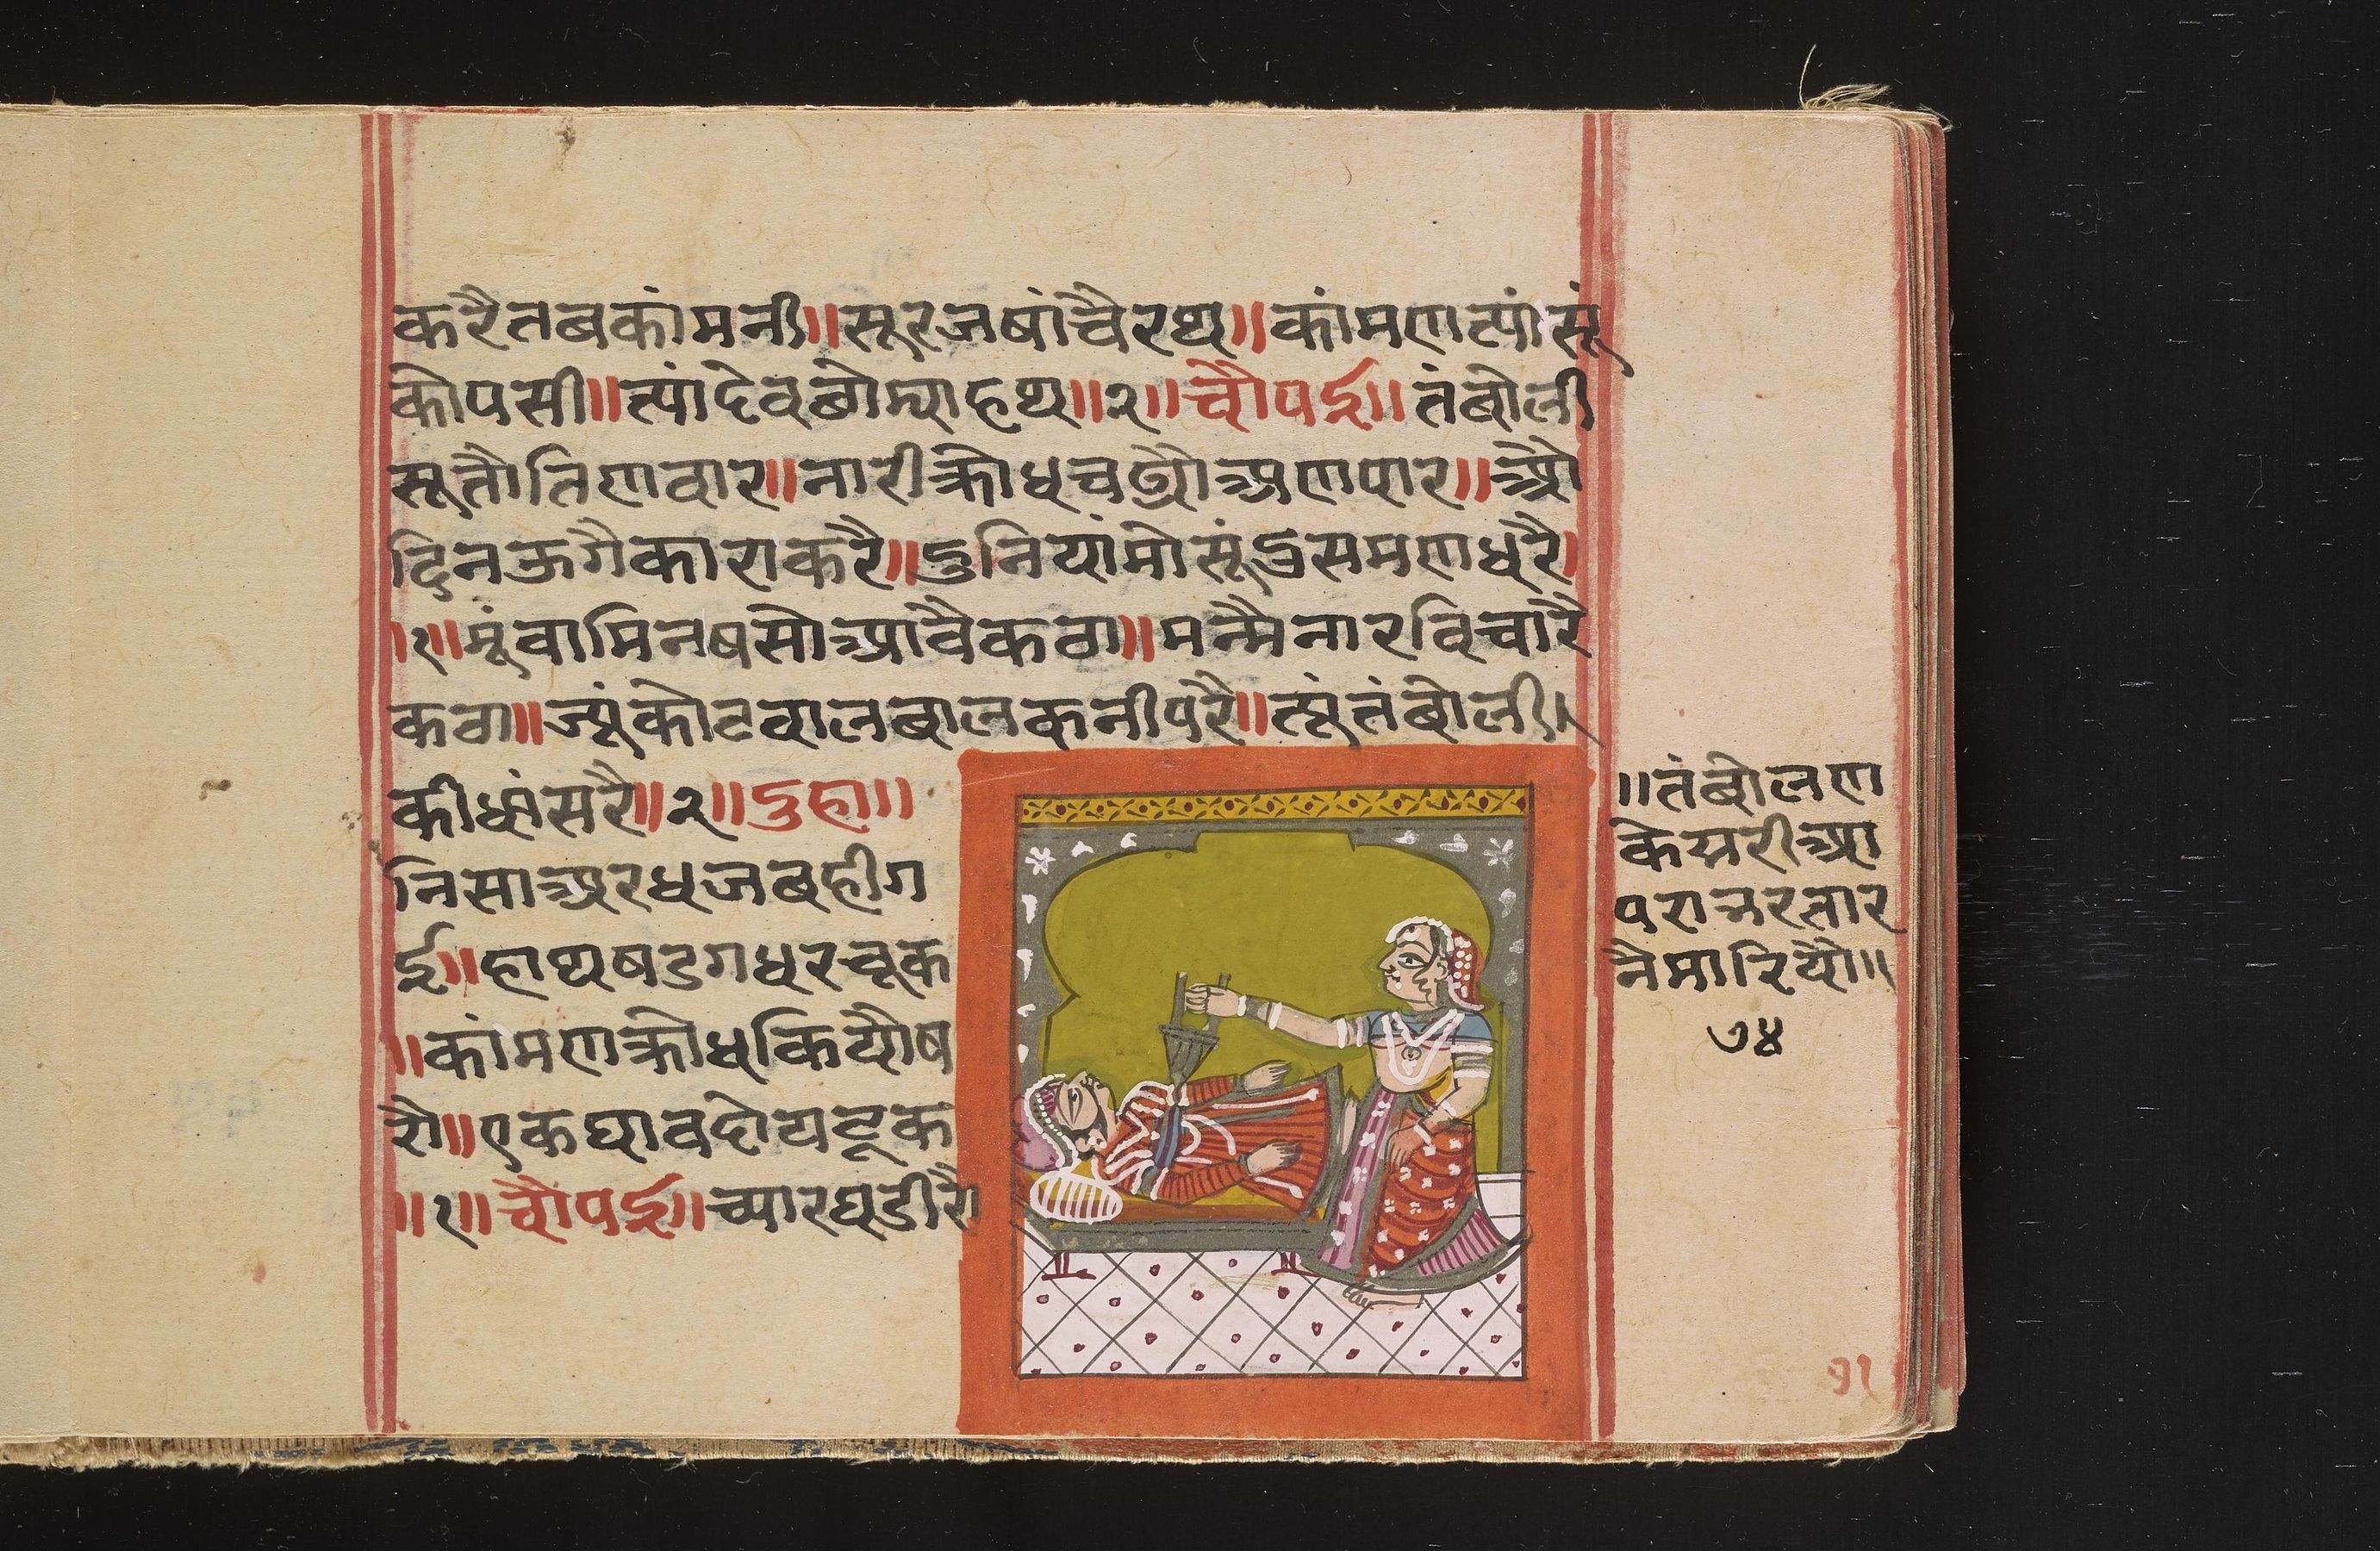 करैतबकांमनी॥सूरजषांचैरथ॥कांमणत्यांसूं
कोपसी॥त्यांदेवबोम्याहथ॥२॥चौपई॥तंबोली
सूतौतिणवार॥नारीक्रोधचढ्यौअणपार॥औ
दिनऊगैकाराकरै॥दुनियांमोसूंदुसमणधरै
॥१॥मूंवामिनषसोआवैकठा॥मन्मैनारविचारै
कठा॥ज्यूंकोटवालबालकनीपरै॥त्यूंतंबोली॥
कीधांसरै॥२॥दुहा॥
निसाअरधजबहीग
ई॥हाथषडगधरचूक
॥कांमणक्रोधकियौष
रौ॥एकघावदोयटूक
॥१॥चौपई॥च्यारघडीरै
॥तंबोलण
केमरीआ
परान्तरतार
नैमारियौ॥
७४
७१